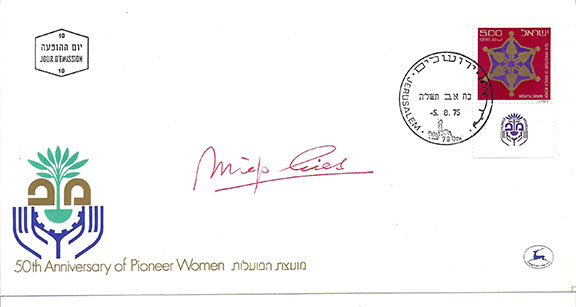 10
יום ההופעה
JOUR D'EMISSION
10
ישראל
5.00
ירושלים
JERUSALEM
כח אב תשל"ה
-5. 8. 75
Miep Gies
מ ב
50th Anniversary of Pioneer Women מועצת הפועלות